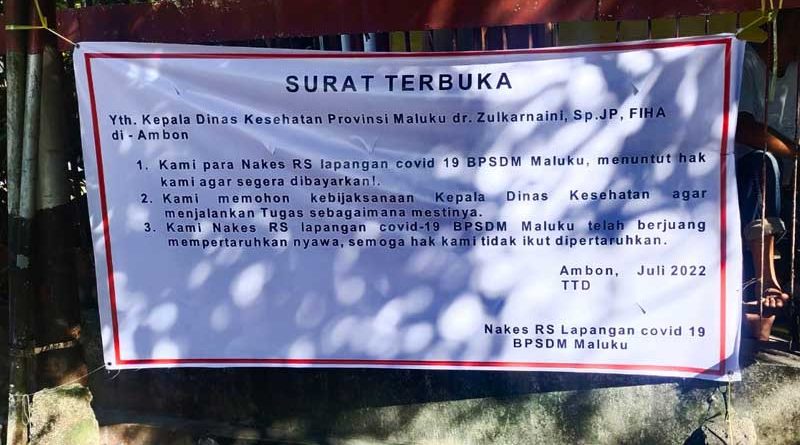 SURAT TERBUKA
Yth. Kepala Dinas Kesehatan Provinsi Maluku dr. Zulkarnaini, Sp.JP, FIHA
di - Ambon
1. Kami para Nakes RS lapangan covid 19 BPSDM Maluku, menuntut hak
kami agar segera dibayarkan!.
2. Kami memohon kebijaksanaan Kepala Dinas Kesehatan agar
menjalankan Tugas sebagaimana mestinya.
3. Kami Nakes RS lapangan covid-19 BPSDM Maluku telah berjuang
mempertaruhkan nyawa, semoga hak kami tidak ikut dipertaruhkan.
Ambon, Juli 2022
TTD
Nakes RS Lapangan covid 19
BPSDM Maluku